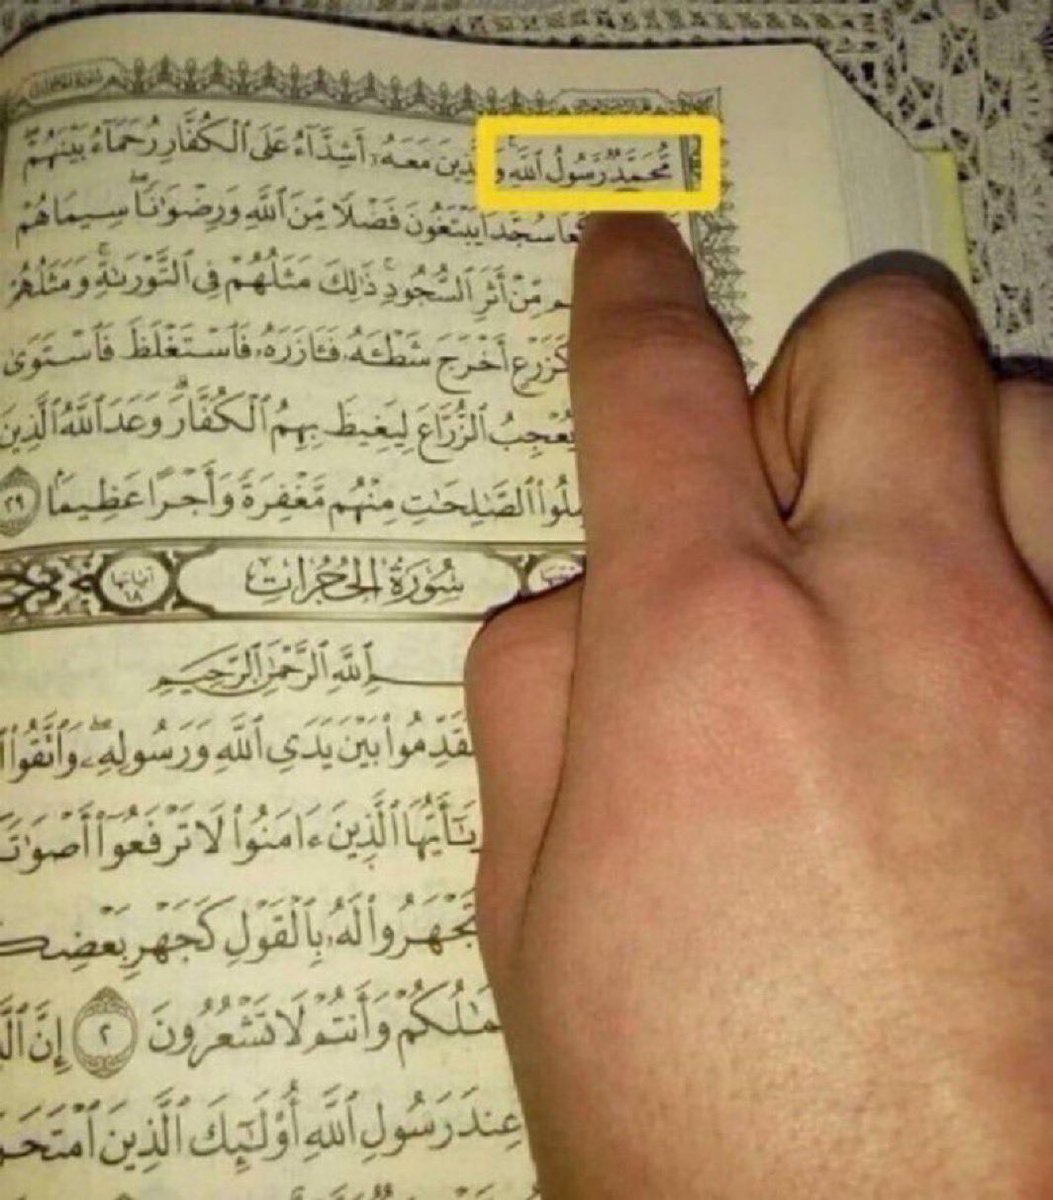 مُّحَمَّدٌ رَّسُولُ ٱللَّهِ ۚ وَ ذِينَ مَعَهُۥٓ أَشِدَّآءُ عَلَى ٱلْكُفَّارِ رُحَمَآءُ بَيْنَهُمْ ۖ
سُجَّدًا يَبْتَغُونَ فَضْلًا مِّنَ ٱللَّهِ وَرِضْوَٰنًا ۖ سِيمَاهُمْ
مِّنْ أَثَرِ ٱلسُّجُودِ ۚ ذَٰلِكَ مَثَلُهُمْ فِى ٱلتَّوْرَىٰةِ ۚ وَمَثَلُهُمْ
كَزَرْعٍ أَخْرَجَ شَطْـَٔهُۥ فَـَٔازَرَهُۥ فَٱسْتَغْلَظَ فَٱسْتَوَىٰ
يُعْجِبُ ٱلزُّرَّاعَ لِيَغِيظَ بِهِمُ ٱلْكُفَّارَ ۗ وَعَدَ ٱللَّهُ ٱلَّذِينَ
ٱلصَّٰلِحَٰتِ مِنْهُم مَّغْفِرَةً وَأَجْرًا عَظِيمًۢا ٢٩
سُورَةُ الحُجُرَاتِ آيَاتُهَا ١٨
ٱللَّهِ ٱلرَّحْمَٰنِ ٱلرَّحِيمِ
بَيْنَ يَدَىِ ٱللَّهِ وَرَسُولِهِۦ ۖ وَٱتَّقُوا۟
يَٰٓأَيُّهَا ٱلَّذِينَ ءَامَنُوا۟ لَا تَرْفَعُوٓا۟ أَصْوَٰتَ
تَجْهَرُوا۟ لَهُۥ بِٱلْقَوْلِ كَجَهْرِ بَعْضِكُ
وَأَنتُمْ لَا تَشْعُرُونَ ٢ إِنَّ
عِندَ رَسُولِ ٱللَّهِ أُو۟لَٰٓئِكَ ٱلَّذِينَ ٱمْتَحَ